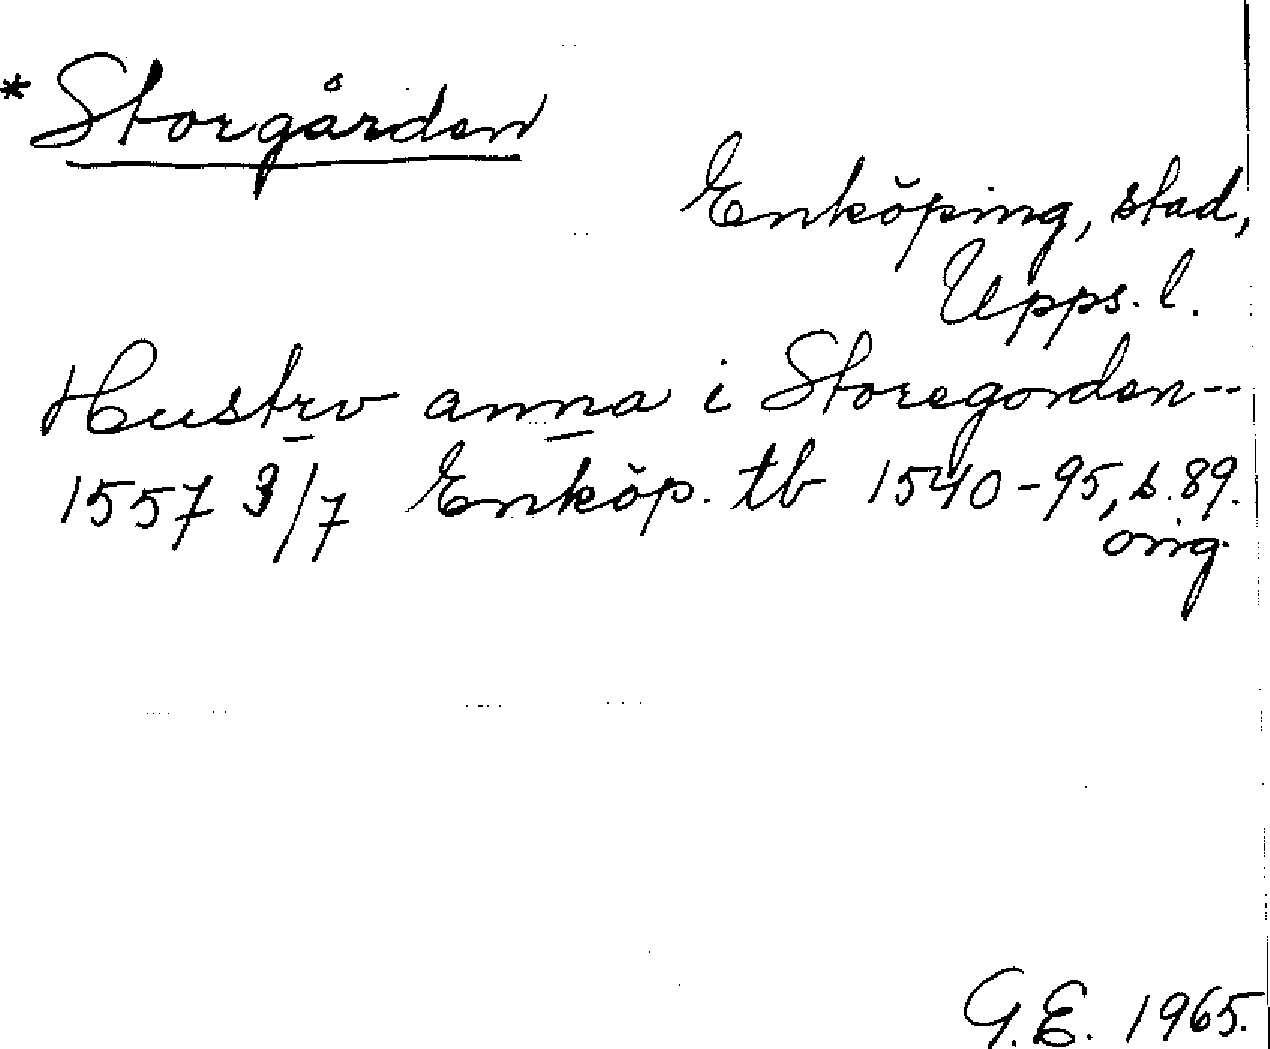 *Storgården
Enköping, stad,
Upps. l.
Hustrv anna i Storegorden--
1557 3/7 Enköp. tb 1540-95, s. 89.
orig.
G.E. 1965.